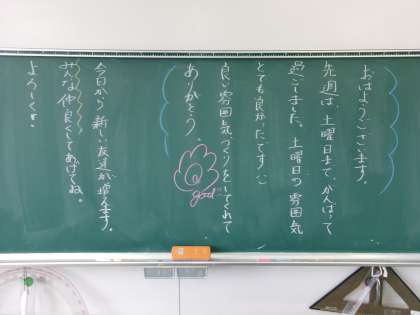 おはようございます。
先週は、土曜日まで、がんばって
過ごしました。土曜日の雰囲気
とても良かったです。
良い雰囲気づくりをしてくれて
ありがとう。
good
今日から新しい友達が増えます。
みんな仲良くしてあげてね。
よろしく。